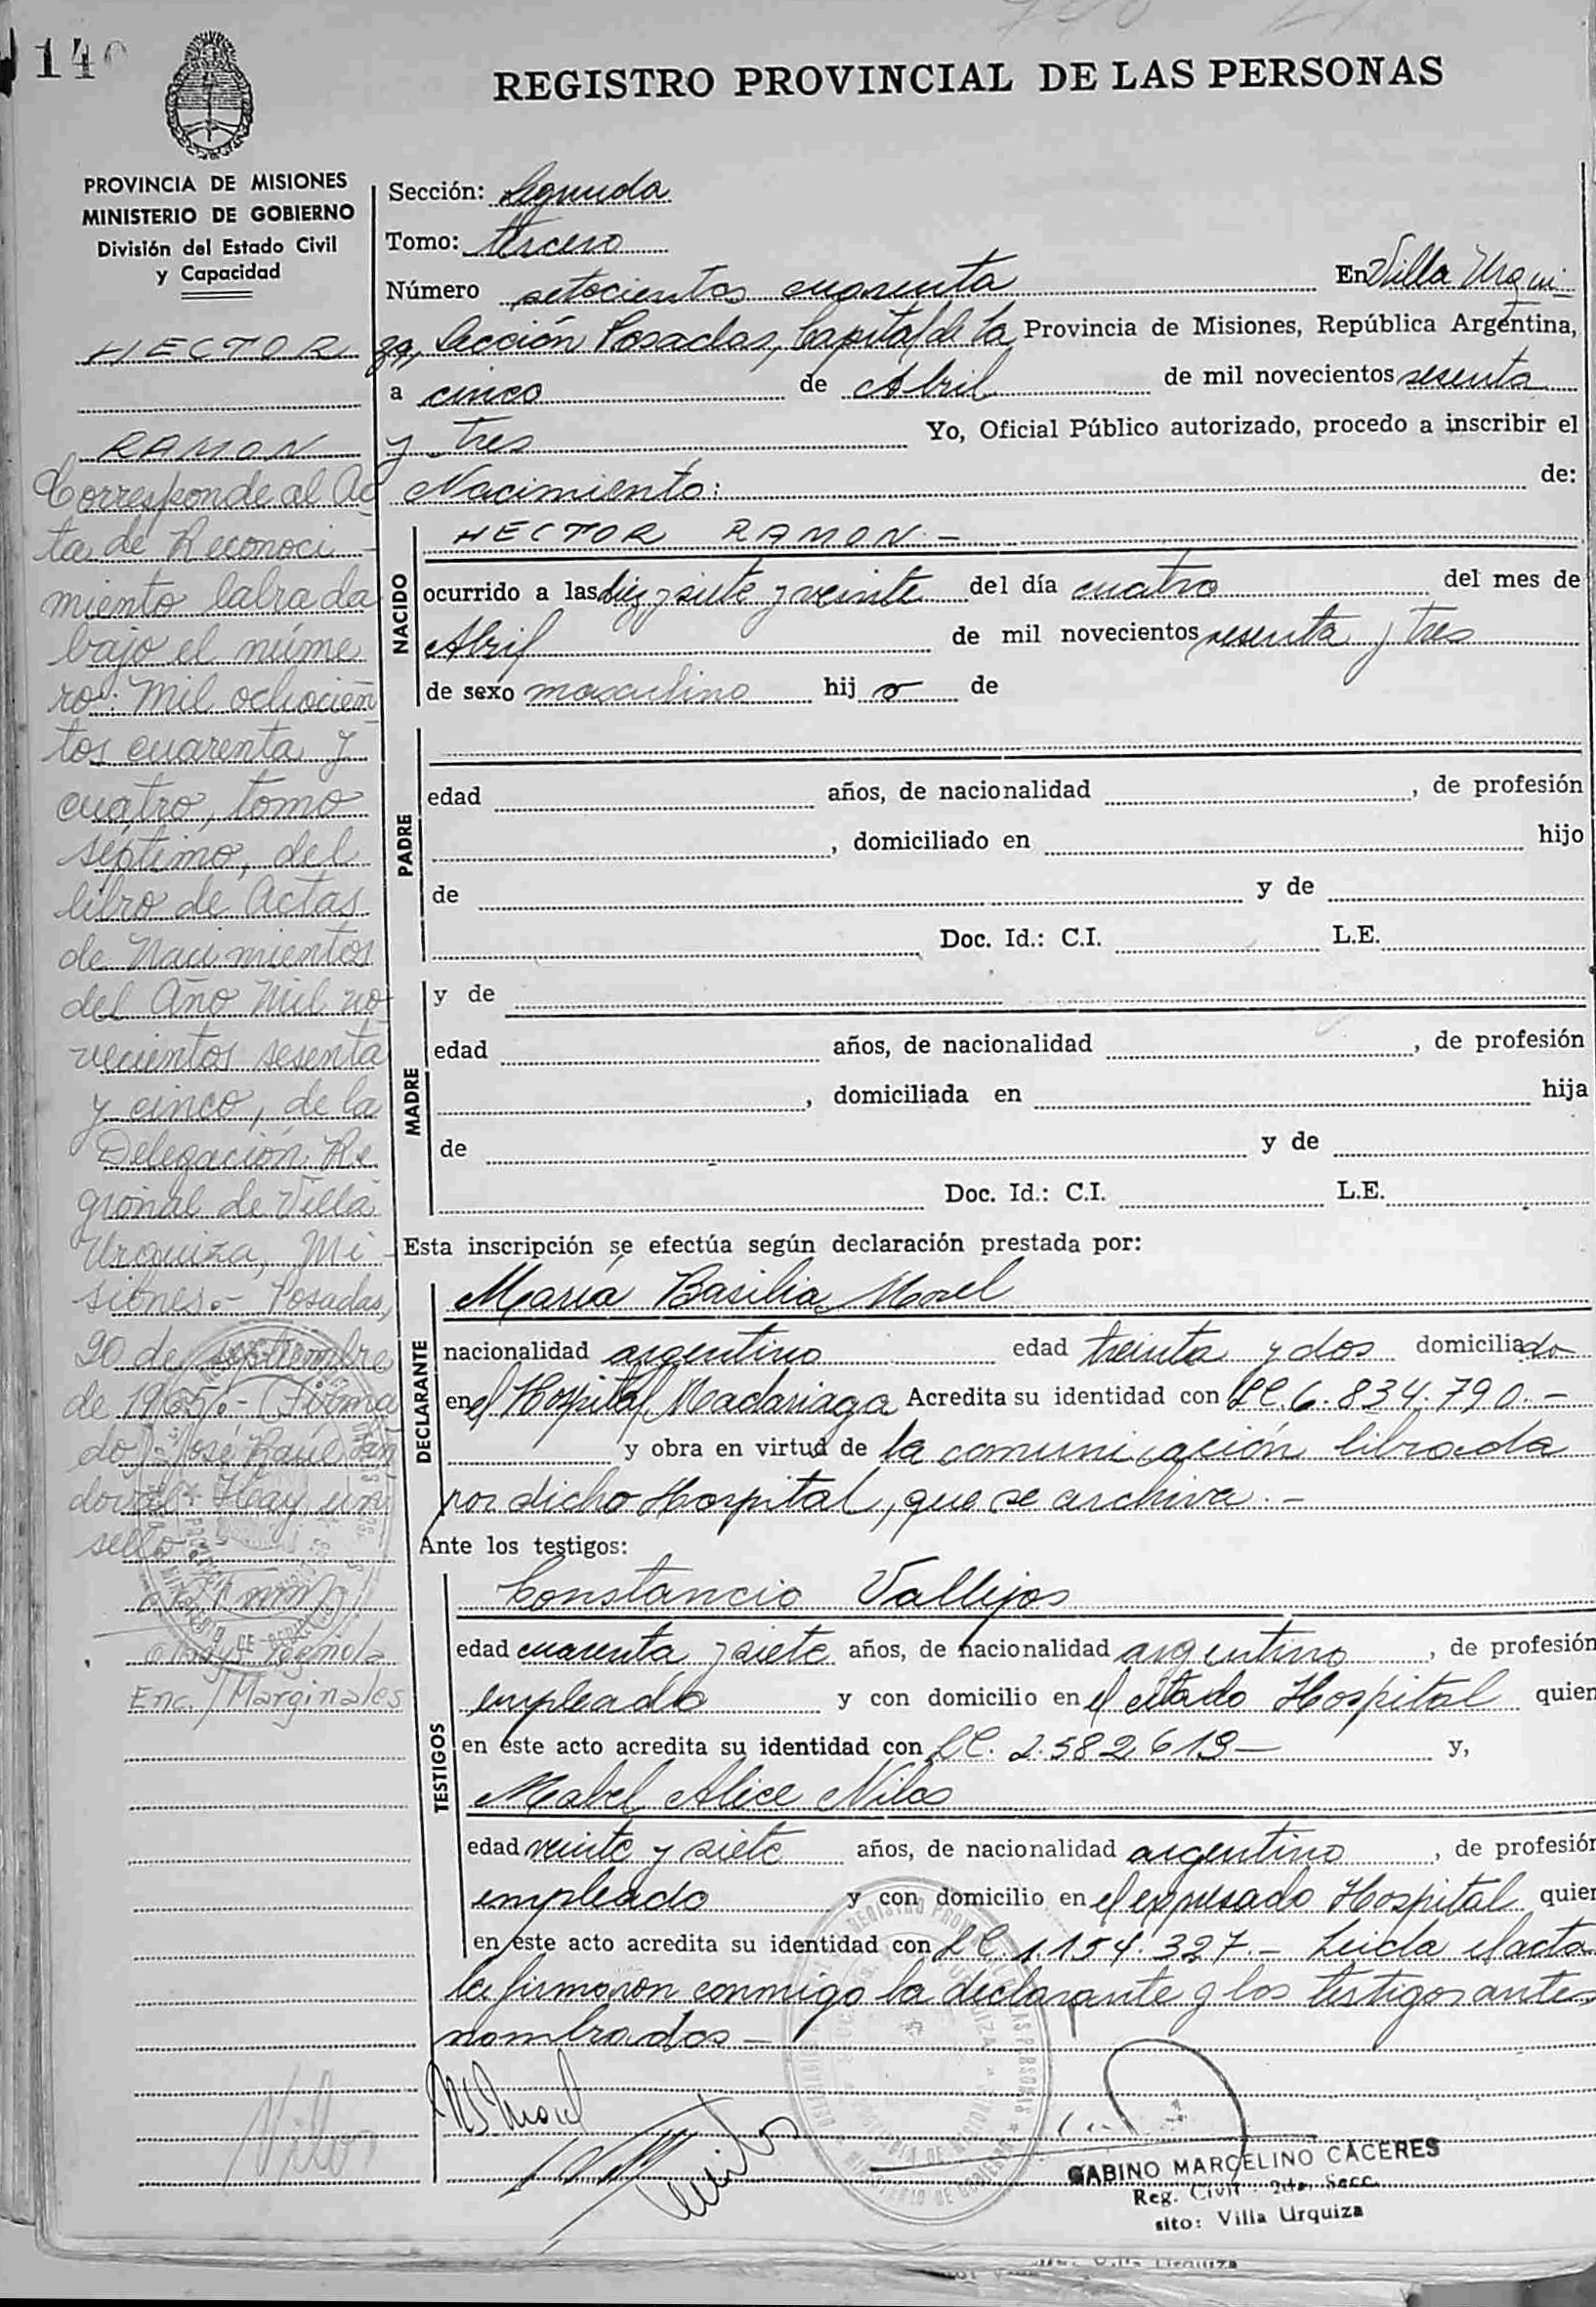 140
REGISTRO PROVINCIAL DE LAS PERSONAS
PROVINCIA DE MISIONES
MINISTERIO DE GOBIERNO
División del Estado Civil
y Capacidad
HECTOR
RAMON
Corresponde al Ac
ta de Reconoci-
miento labrada
bajo el núme
ro: Mil ochocien
tos cuarenta y
cuatro, tomo
séptimo, del
libro de Actas
de Nacimientos
del Año Mil no-
vecientos sesenta
y cinco, de la
Delegación Re
gional de Villa
Urquiza, Mi-
siones.- Posadas,
20 de septiembre
de 1965.- (Firma
do): José Raúl
Hay un
sello
Enc./Marginales
Sección: Segunda
Tomo: tercero
Número setocientos cuarenta En Villa Urqui-
za, Sección Posadas, Capital de la Provincia de Misiones, República Argentina,
a cinco de Abril de mil novecientos sesenta
y tres Yo, Oficial Público autorizado, procedo a inscribir el
Nacimiento: de:
NACIDO
HECTOR RAMON.-
ocurrido a las diez y siete y veinte del día cuatro del mes de
Abril de mil novecientos sesenta y tres
de sexo masculino hij o de
PADRE
edad años, de nacionalidad , de profesión
, domiciliado en hijo
de y de
Doc. Id.: C.I. L.E.
MADRE
y de
edad años, de nacionalidad , de profesión
, domiciliada en hija
de y de
Doc. Id.: C.I. L.E.
Esta inscripción se efectúa según declaración prestada por:
DECLARANTE
María Basilia Morel
nacionalidad argentino edad treinta y dos domiciliado
en el Hospital Madariaga Acredita su identidad con LC. 6.834.790.-
y obra en virtud de la comunicación librada
por dicho Hospital, que se archiva.-
Ante los testigos:
TESTIGOS
Constancio Vallejos
edad cuarenta y siete años, de nacionalidad argentino , de profesión
empleado y con domicilio en el citado Hospital quien
en este acto acredita su identidad con LC. 2.582.619- y,
Mabel Alice Nilos
edad veinte y siete años, de nacionalidad argentino , de profesión
empleado y con domicilio en el expresado Hospital quien
en este acto acredita su identidad con LC. 1.154.327.- Leida el acta
la firmaron conmigo la declarante y los testigos antes
nombrados-
GABINO MARCELINO CACERES
Reg. Civil 2da. Secc.
sito: Villa Urquiza